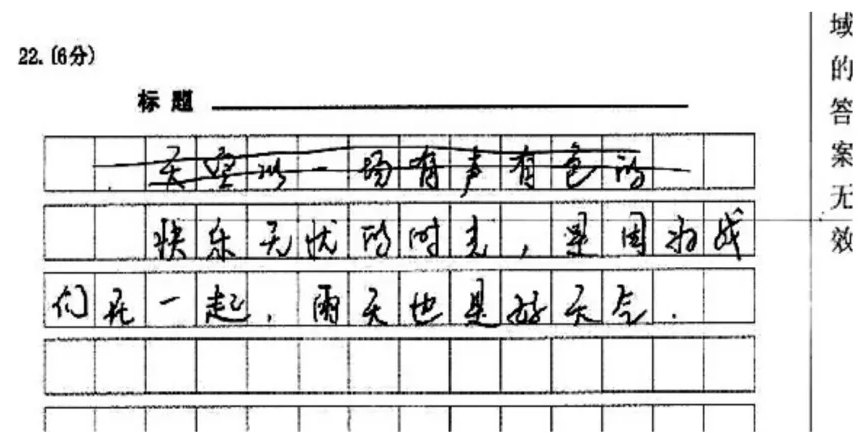 22.(6分)
标题
天空以一场有声有色的
快乐无忧的时光,是因为我
们在一起,雨天也是好天气.
域
的
答
案
无
效